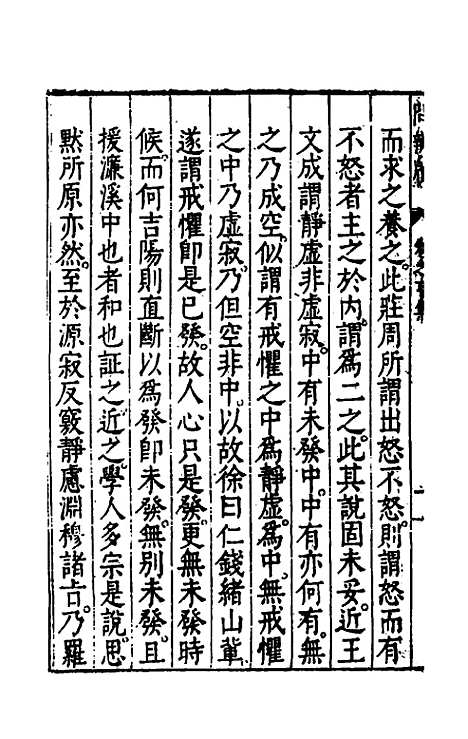 而求之養之此莊周所謂出怒不怒則謂怒而有
不怒者主之於内謂爲二之此其說固未妥近王
文成謂靜虛非虛寂中有未發中中有亦何有無
之乃成空似謂有戒懼之中爲靜虛爲中無戒懼
之中乃虛寂乃但空非中以故徐曰仁錢緒山輩
遂謂戒懼即是已發故人心只是發更無未發時
候而何吉陽則直斷以爲發即未發無別未發且
援濂溪中也者和也証之近之學人多宗是說思
黙所原亦然至於源寂反竅靜慮淵穆諸占乃羅